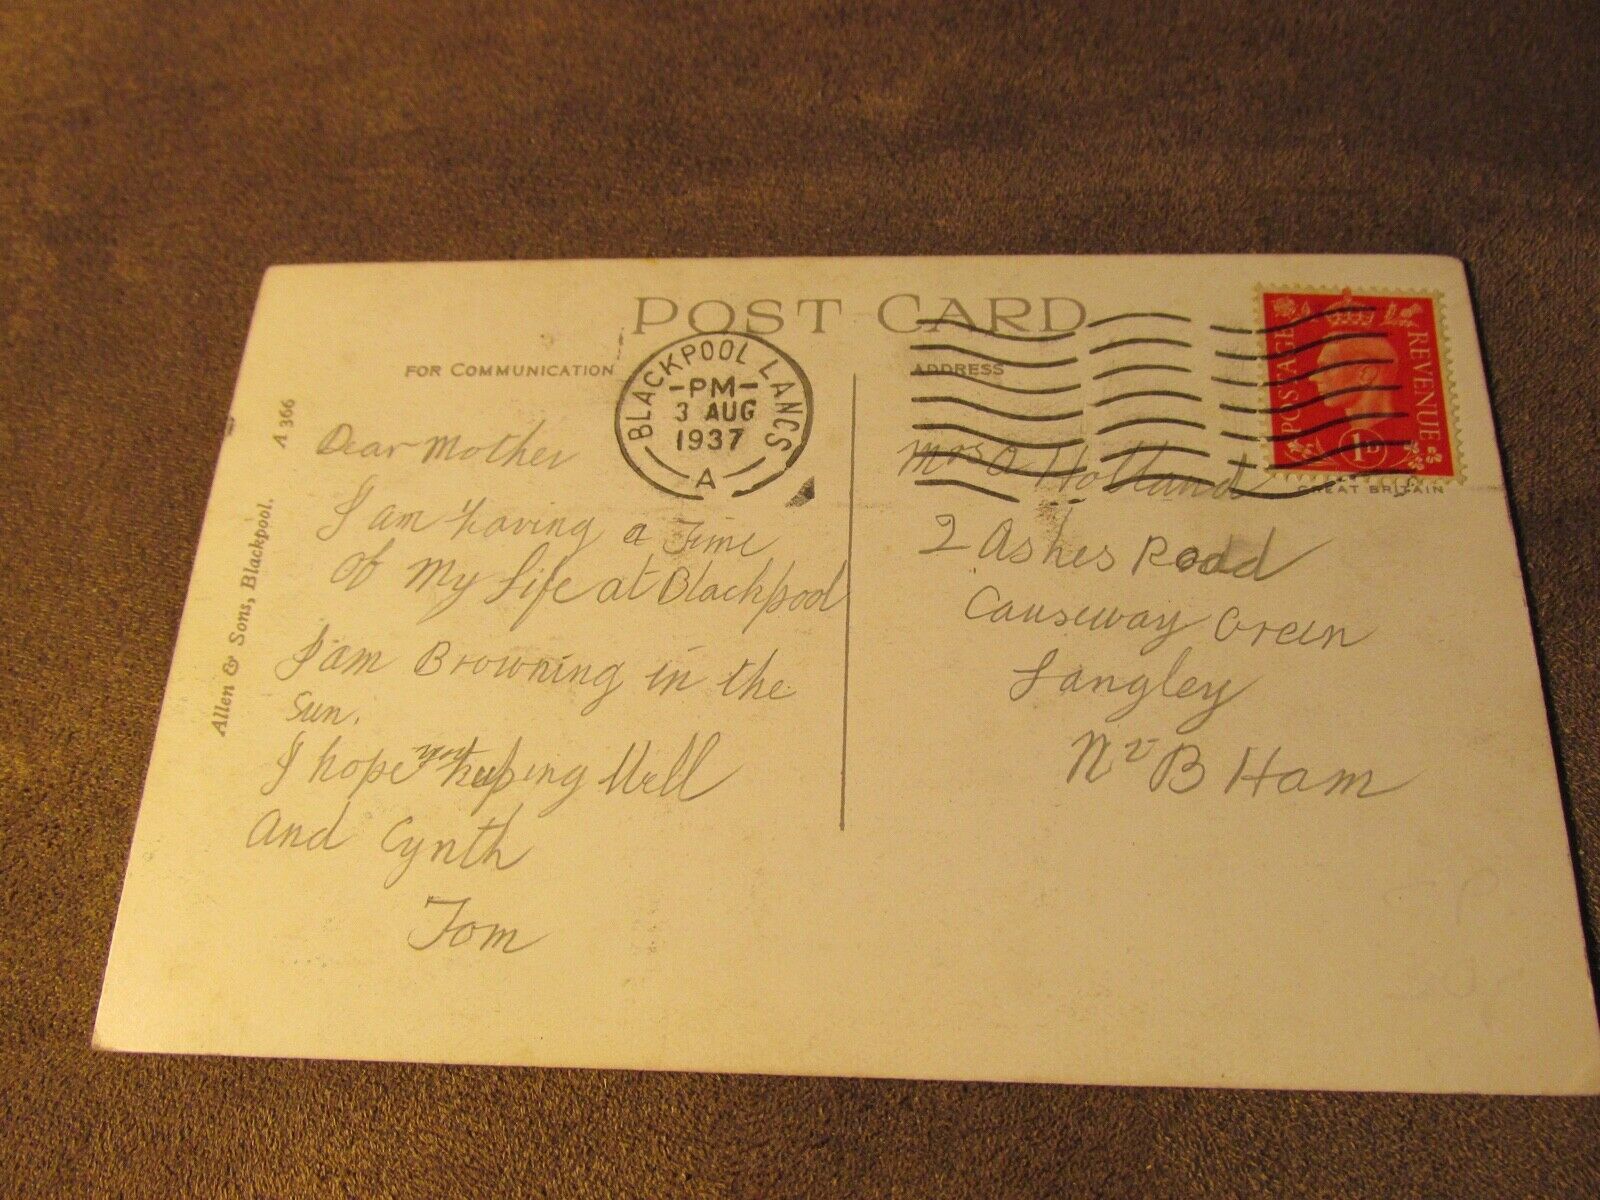 POST CARD
FOR COMMUNICATION
ADDRESS
BLACKPOOL LANCS
-PM-
3 AUG
1937
A
POSTAGE
REVENUE
1D
GREAT BRITAIN
A 366
Allen & Sons, Blackpool.
Dear Mother
I am having a Time
Of My Life at Blackpool
I am Browning in the
Sun.
I hope your keeping Well
And Cynth
Tom
Mrs A Holland
2 Ashes Road
Causeway Green
Langley
Nr B Ham